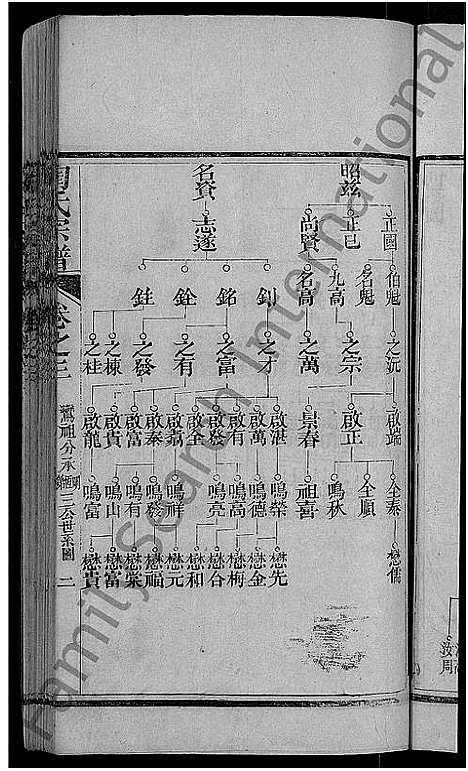 昭玆
名資
正國
正己
尚賢
志遂
伯魁
名魁
九高
名高
釗
銘
銓
鉒
之沅
之宗
之萬
之才
之富
之有
之發
之棟
之桂
啟端
啟正
景春
啟湛
啟萬
啟有
啟發
啟全
啟翁
啟泰
啟富
啟貴
啟龍
全泰
全順
鳴秋
祖喜
鳴榮
鳴德
鳴高
鳴亮
鳴祥
鳴發
鳴有
鳴山
鳴富
懋儒
懋先
懋金
懋梅
懋合
懋和
懋元
懋福
懋棠
懋富
懋貴
氏宗譜
卷之三
祖分承
三公世系圖
二
汝周
Family Search International